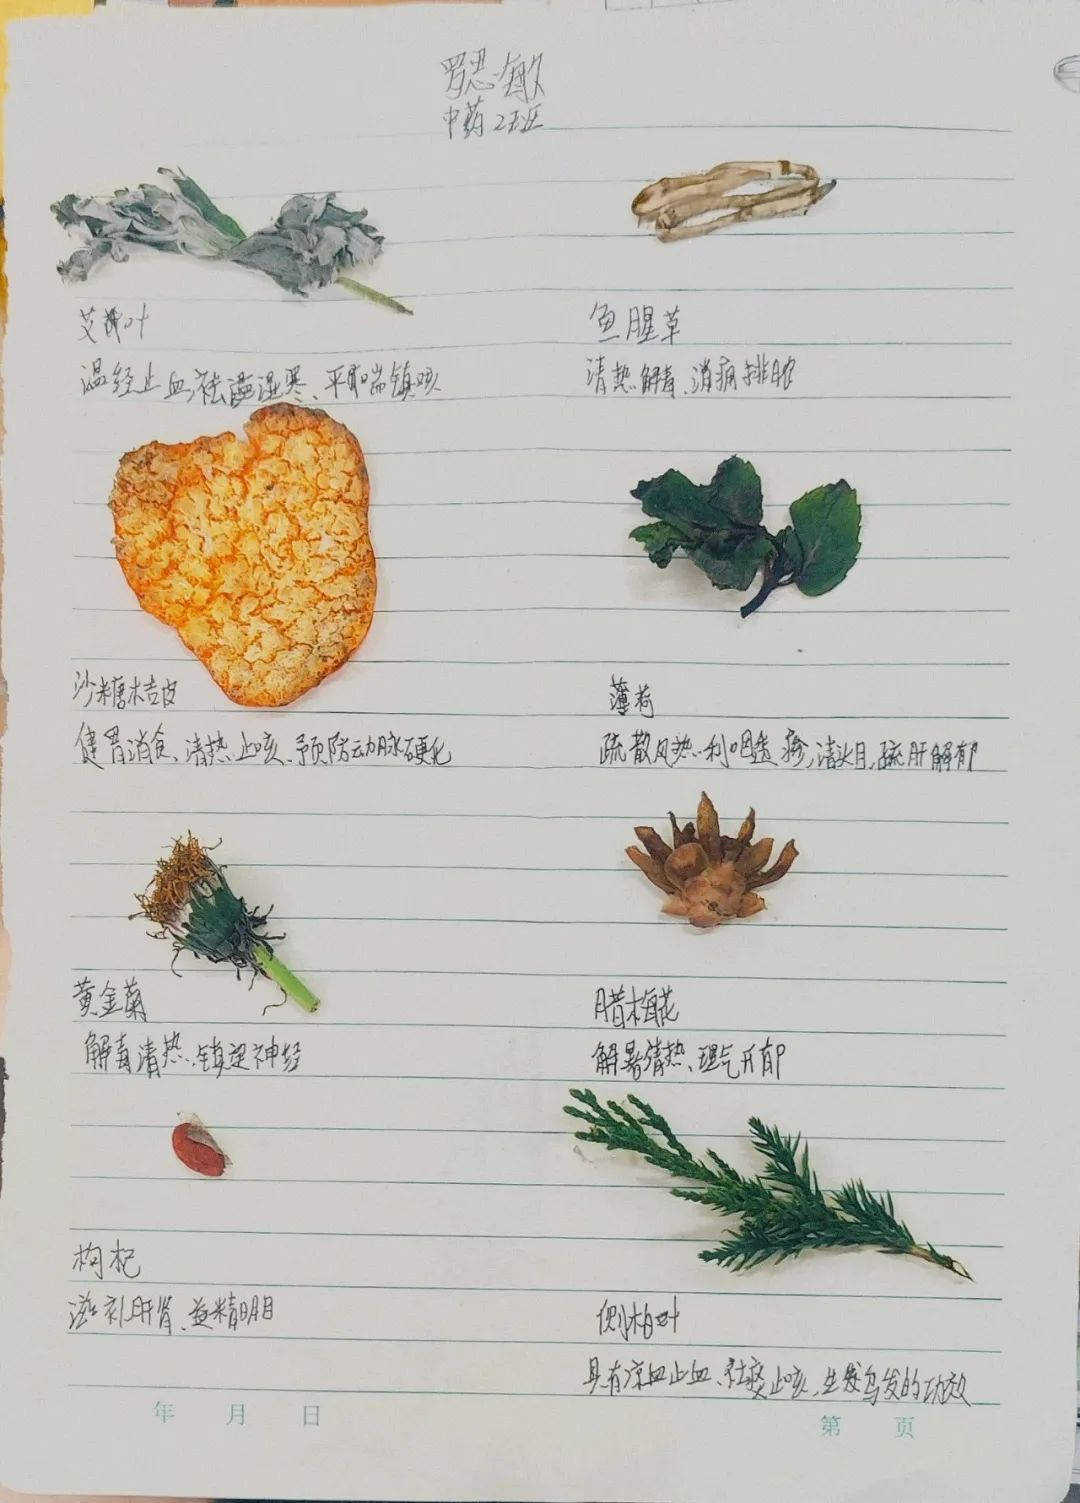 罗思敏
中药2班
艾叶
温经止血、祛湿寒、平喘镇咳
鱼腥草
清热解毒、消痈排脓
沙糖桔皮
健胃消食、清热、止咳、预防动脉硬化
薄荷
疏散风热、利咽透疹、清头目、疏肝解郁
黄金菊
解毒清热、镇定神经
腊梅花
解暑清热、理气开郁
枸杞
滋补肝肾、益精明目
侧柏叶
具有凉血止血、祛痰止咳、生发乌发的功效
年 月 日
第 页